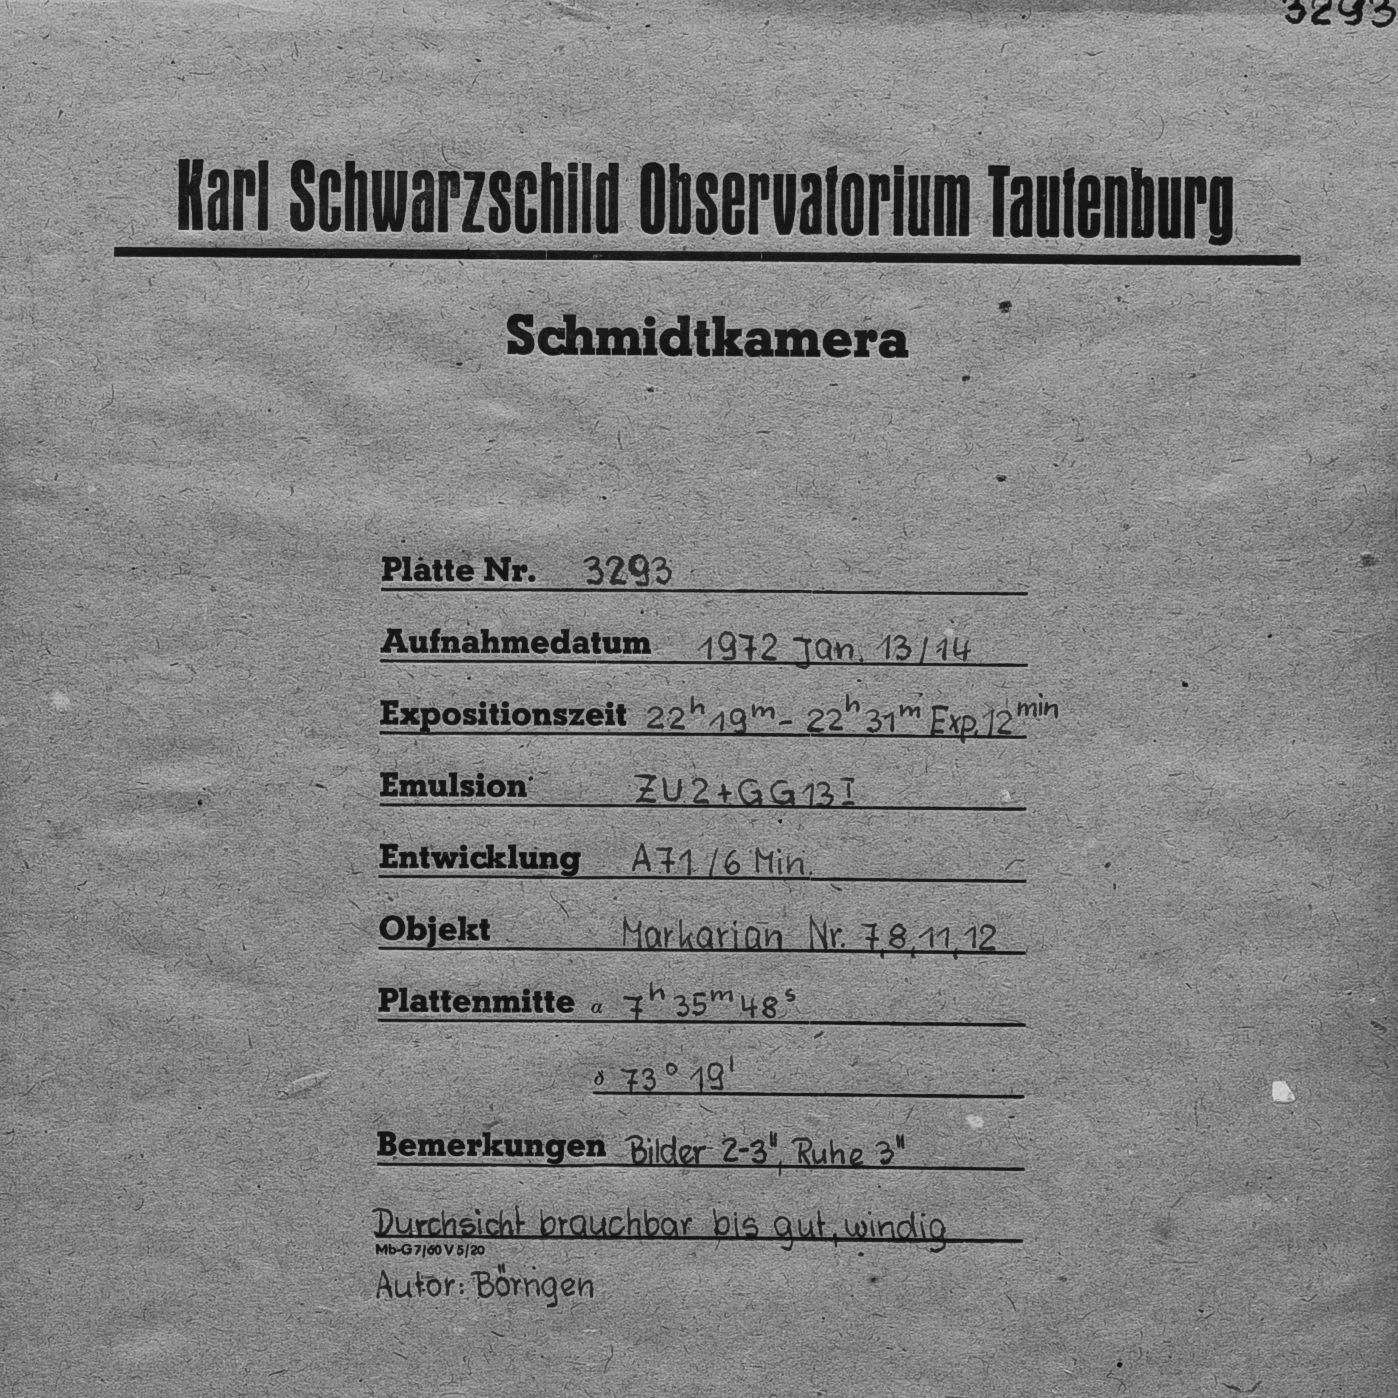 3293
Karl Schwarzschild Observatorium Tautenburg
Schmidtkamera
Platte Nr. 3293
Aufnahmedatum 1972 Jan. 13/14
Expositionszeit 22h 19m - 22h 31m Exp. 12min
Emulsion ZU2+GG13 I
Entwicklung A71/6 Min.
Objekt Markarian Nr. 7,8,11,12
Plattenmitte α 7h 35m 48s
δ 73° 19'
Bemerkungen Bilder 2-3", Ruhe 3"
Durchsicht brauchbar bis gut, windig
Mb-G 7/60 V 5/20
Autor: Börngen